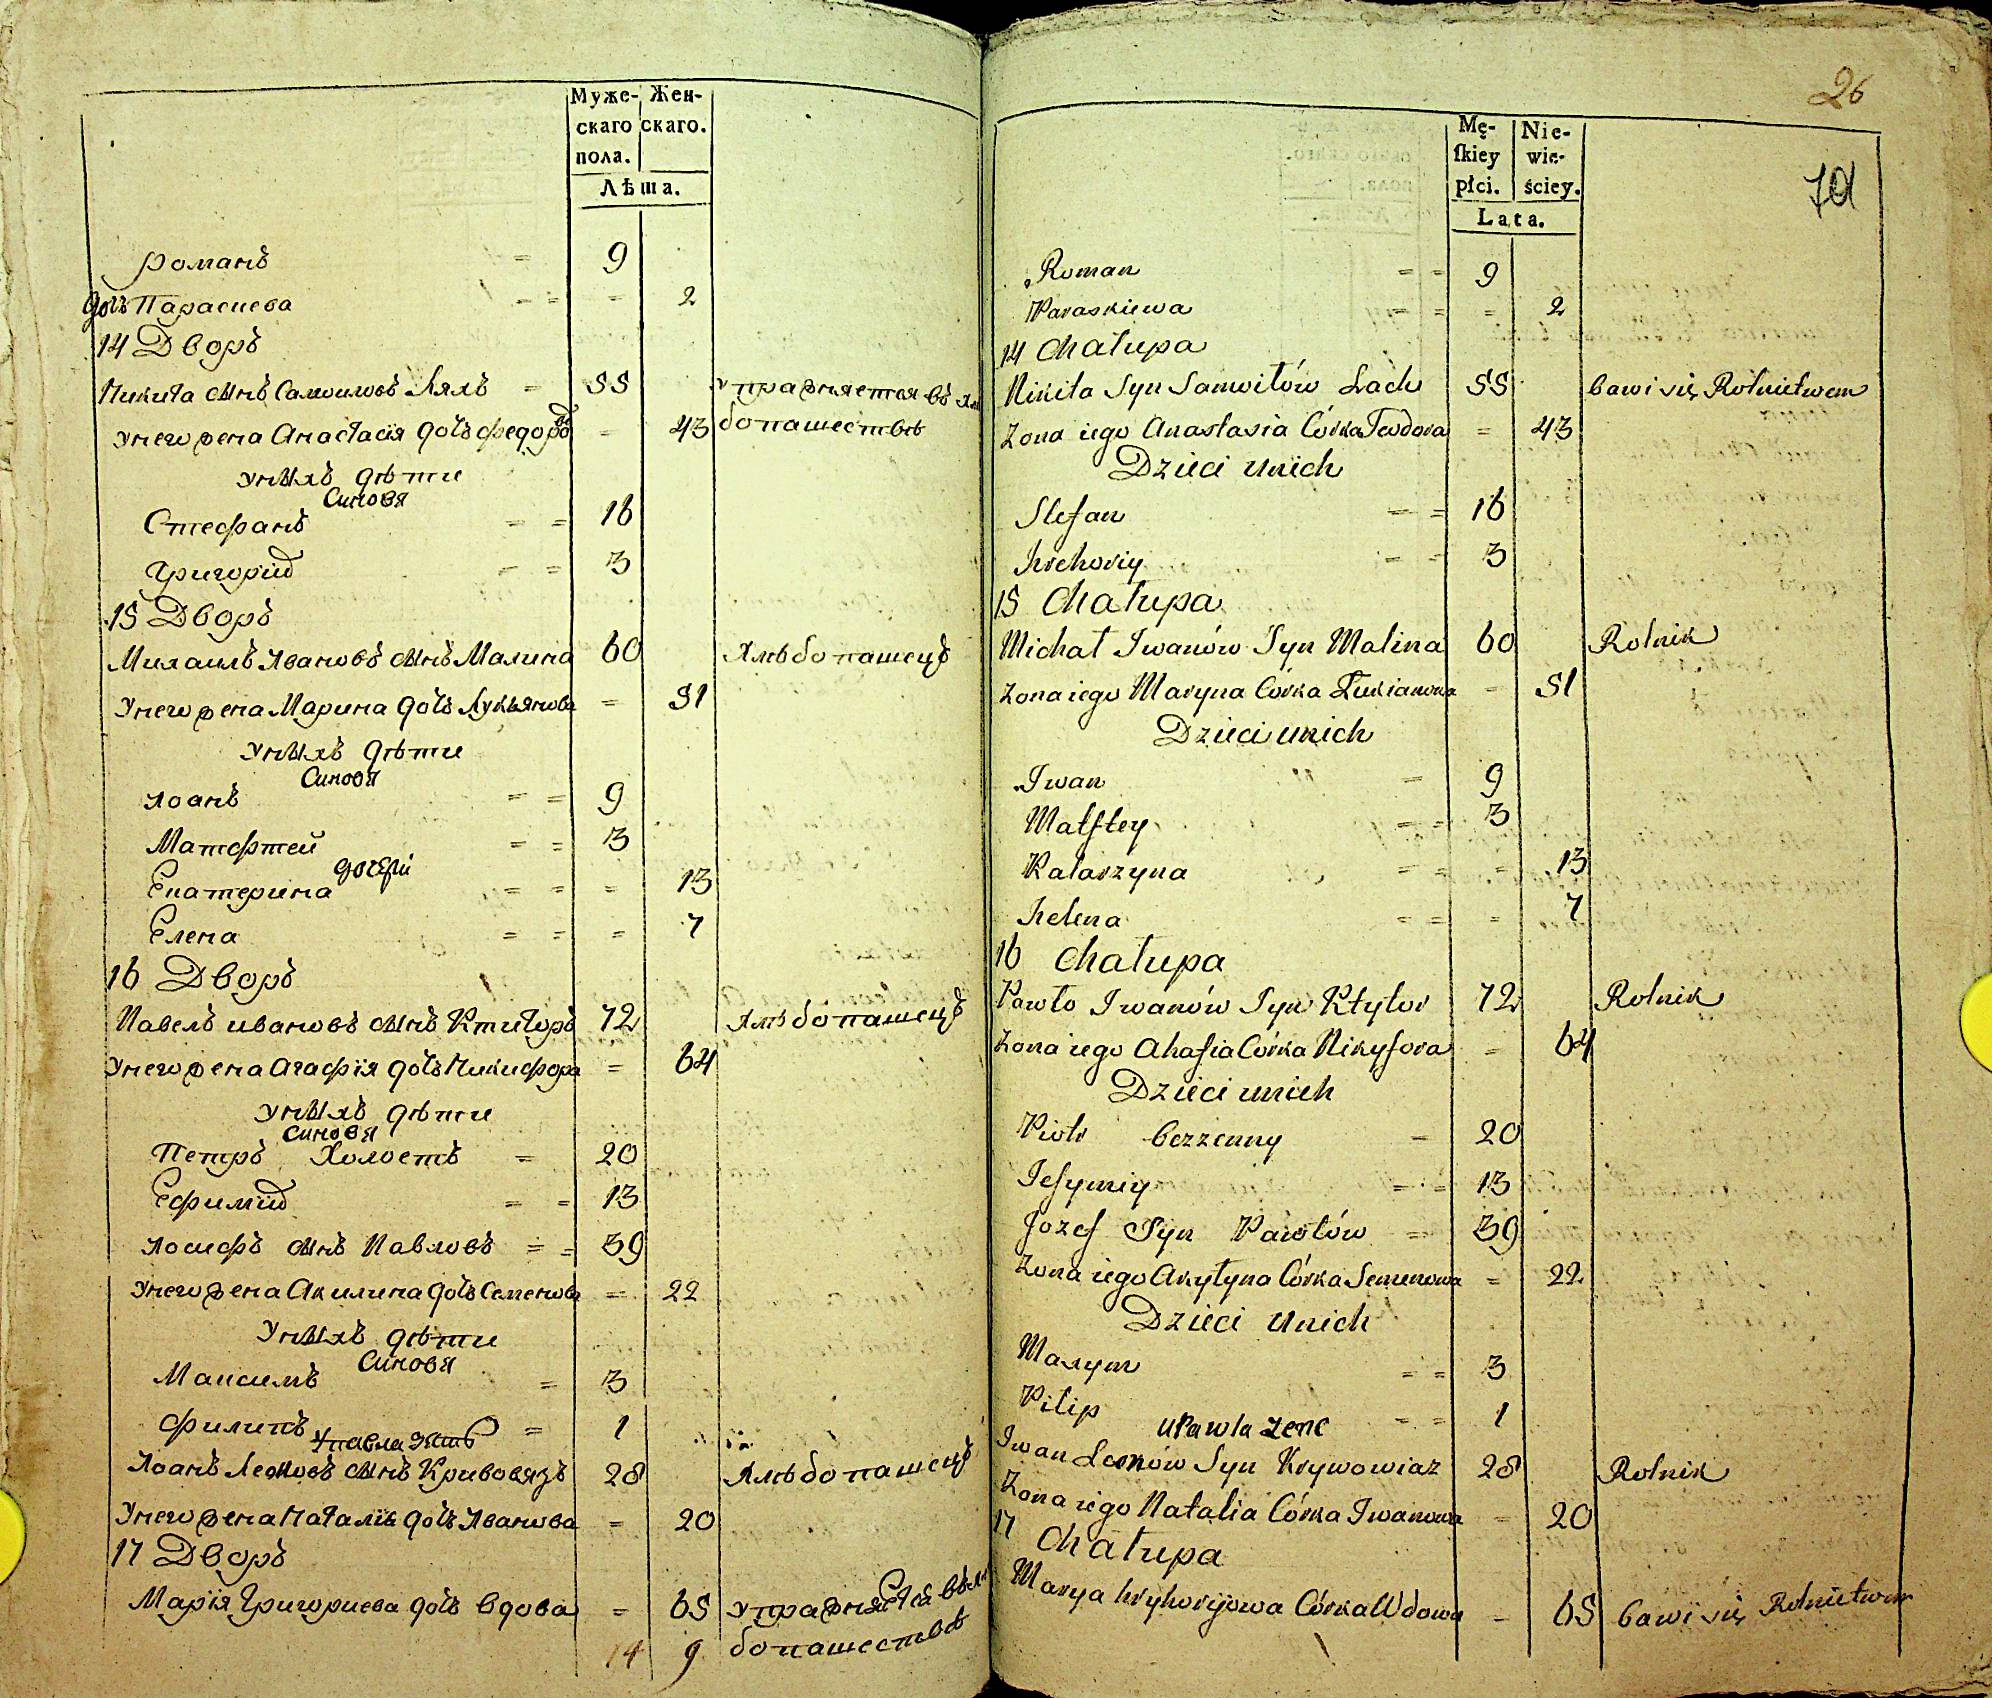 Муже- Жен-
скаго скаго.
пола.
Лѣта.
Романъ = 9
дочь Параскева = = = 2
14 Дворъ
Никита сынъ Самоиловъ Ляхъ = 55 упражняется въ хлѣ
Унего жена Анастасія дочь Федорова = 43 бопашествѣ
Унихъ дѣти
Синовя
Стефанъ = = 16
Григорій = = 3
15 Дворъ
Михаилъ Ивановъ сынъ Малина 60 Хлѣбопашецъ
Унего жена Марина дочь Лукьянова = 51
Унихъ дѣти
Синовя
Иоанъ = = 9
Матфтей = = 3
дочері
Екатерина = = = 13
Елена = = = 7
16 Дворъ
Павелъ ивановъ сынъ Ктиторъ 72 Хлѣбопашецъ
Унего жена Агафія дочь Никифора = 64
Унихъ дѣти
синовя
Петръ Холостъ = 20
Ефимій = = 13
Иосифъ сынъ Павловъ = = 39
Унего жена Акилина дочь Семенова = 22
Унихъ дѣти
Синовя
Максимъ = 3
Филипъ = 1
Упавла зять
Иоанъ Леоновъ сынъ Кривовязъ 28 Хлѣбопашецъ
Унего жена Наталія дочь Иванова = 20
17 Дворъ
Марія Григориева дочь вдова = 65 упражняется въ хлѣ
14 9 бопашествѣ
26
70
Mę- Nie-
ſkiey wie-
płci. ściey.
Lata.
Roman = = 9
Paraskiewa = = = 2
14 Chałupa
Nikita Syn Samoiłów Lach 55 bawi się Rolnictwem
Zona iego Anastasia Córka Teodora = 43
Dzieci unich
Stefan = = 16
Hrehoriy = = 3
15 Chałupa
Michał Iwanów Syn Malina 60 Rolnik
Zona iego Maryna Córka Łukianowa = 51
Dzieci unich
Iwan = 9
Matftey = = 3
Katarzyna = = = 13
Helena = = = 7
16 Chałupa
Pawło Iwanów Syn Ktytor 72 Rolnik
Zona iego Ahafia Córka Nikyfora = 64
Dzieci unich
Piotr bezzenny = 20
Jefymiy = = 13
Jozef Syn Pawłów = 39
Zona iego Akyłyna Córka Semenowa = 22
Dzieci unich
Maxym = = 3
Pilip = = 1
uPawla zenc
Iwan Leonów Syn Krywowiaz 28 Rolnik
Zona iego Natalia Córka Iwanowa = 20
17 Chałupa
Marya Hryhoryjowa Córka Wdowa = 65 bawi się Rolnictwem